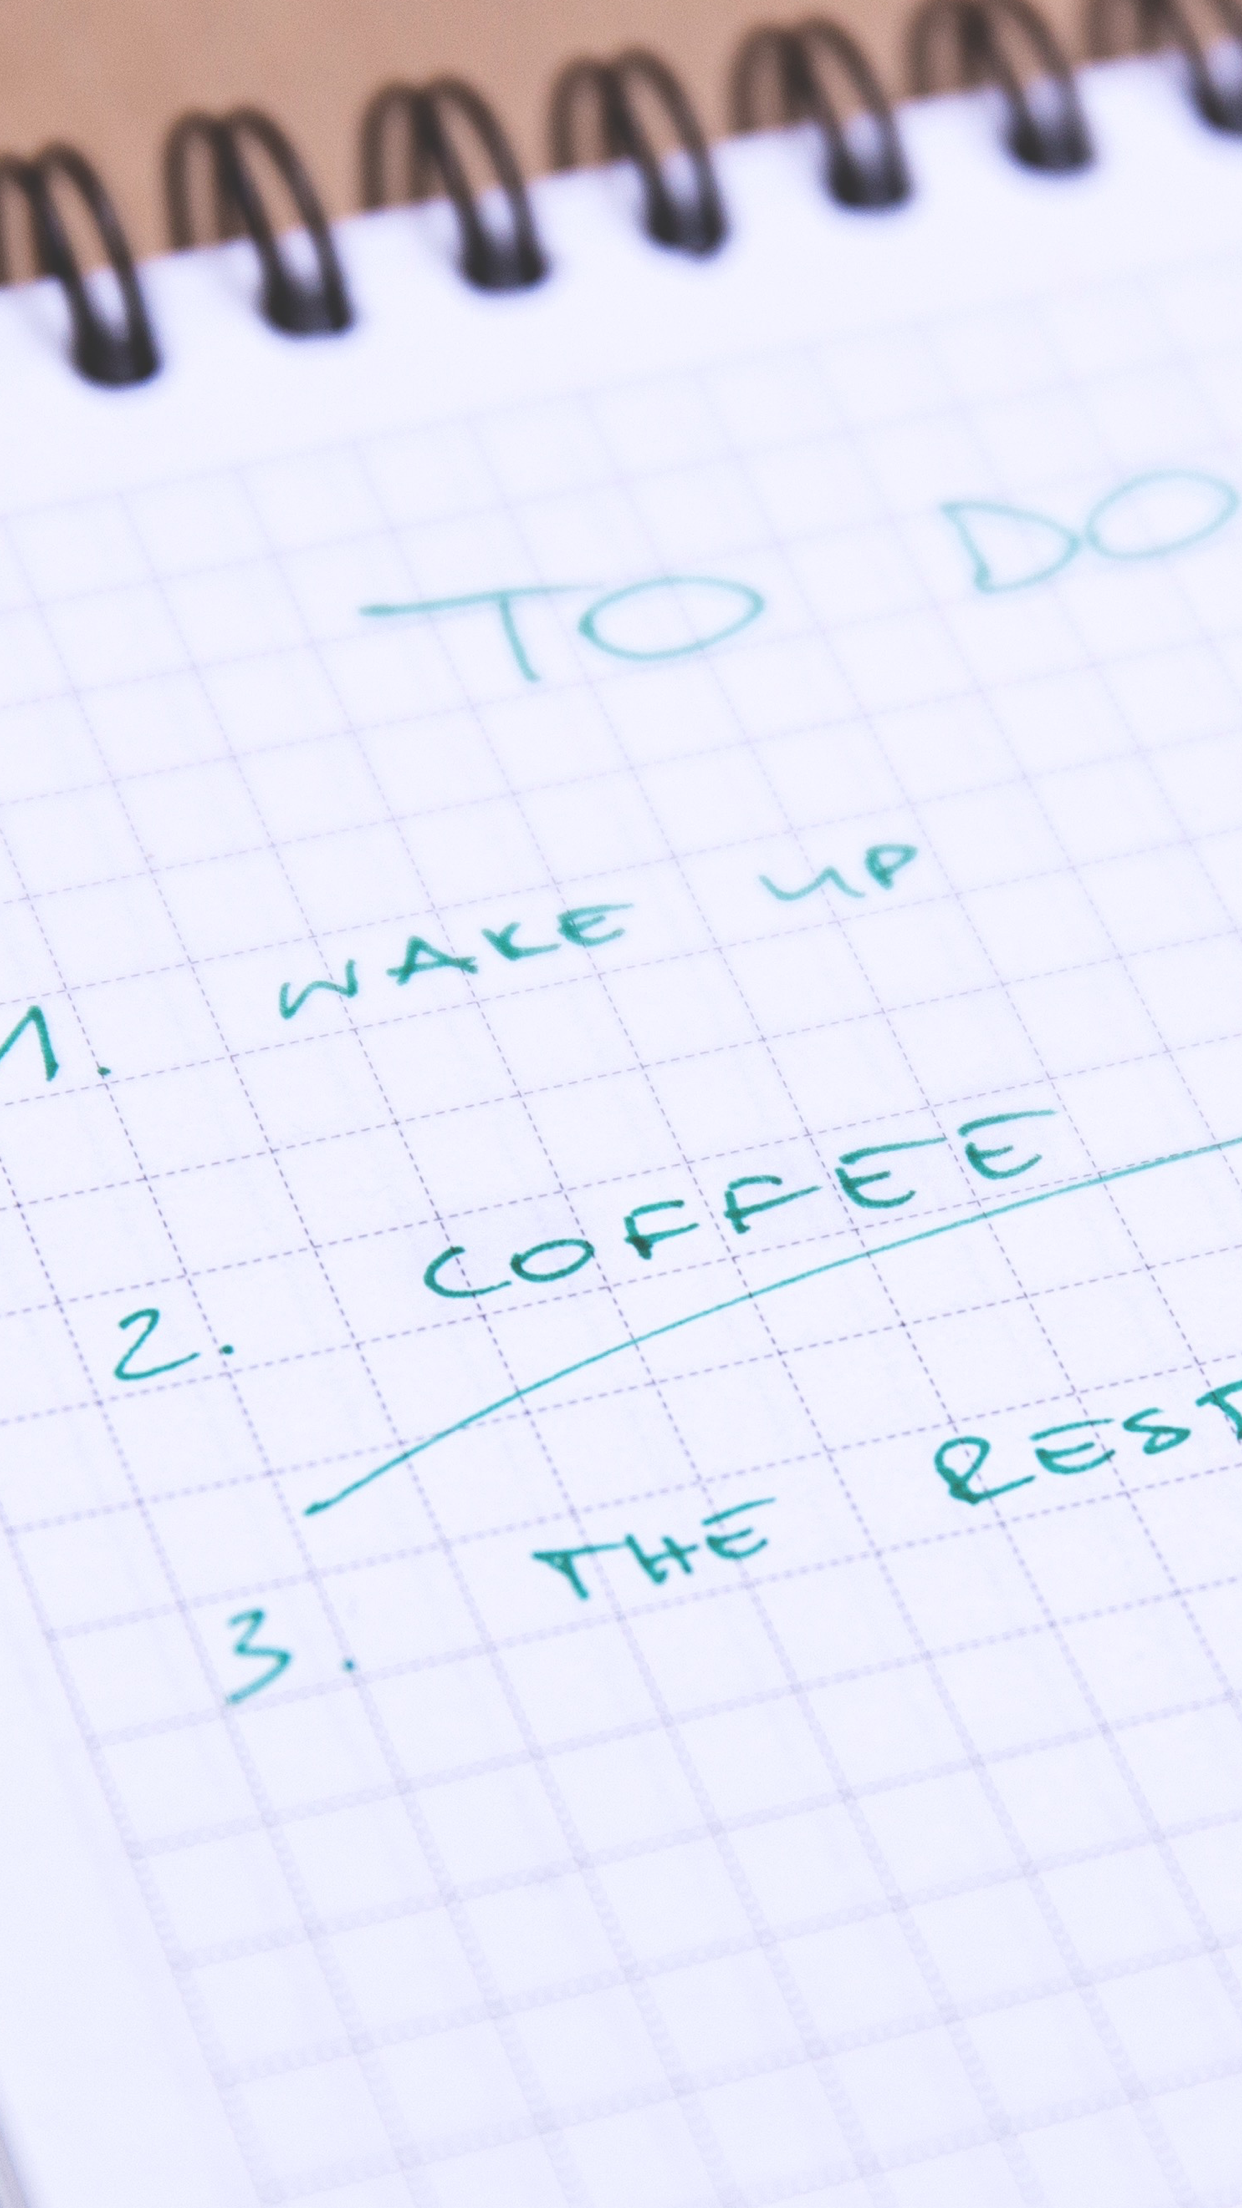 TO DO
1. WAKE UP
2. COFFEE
3. THE REST